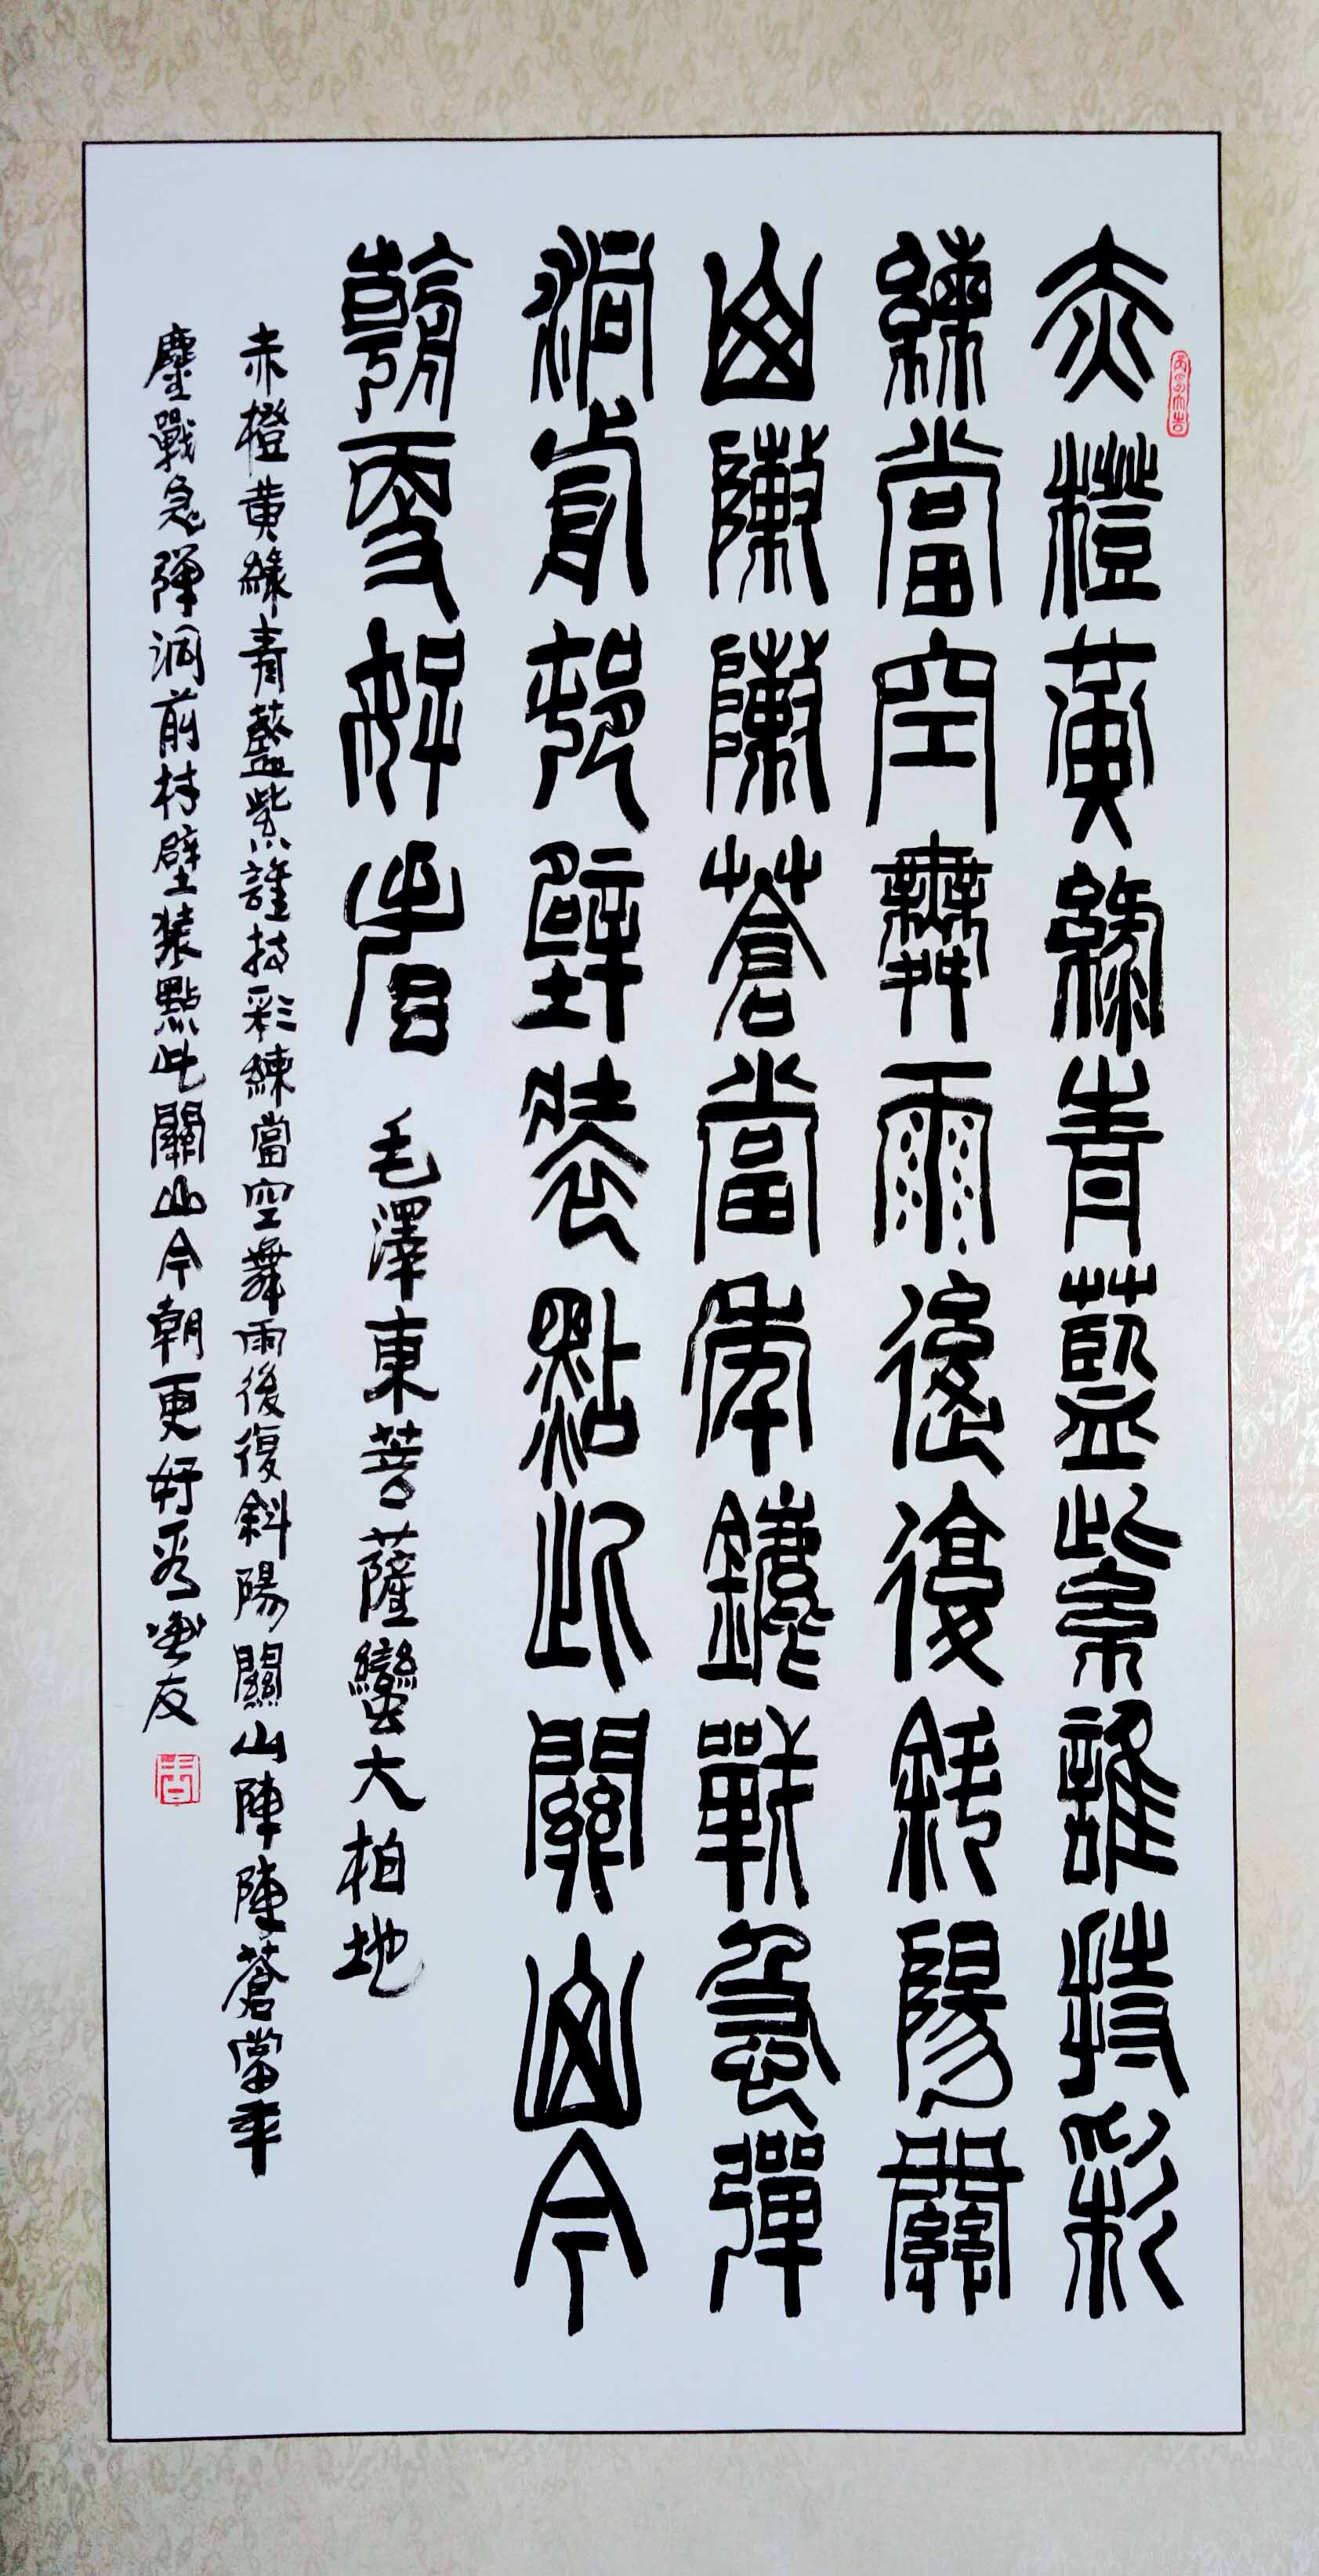 赤橙黃綠青藍紫誰持彩
練當空舞雨後復斜陽關
山陣陣蒼當年鏖戰急彈
洞前邨壁裝點此關山今
朝更好看 毛澤東菩薩蠻大柏地
赤橙黃綠青藍紫誰持彩練當空舞雨後復斜陽關山陣陣蒼當年
鏖戰急彈洞前村壁裝點此關山今朝更好看 友